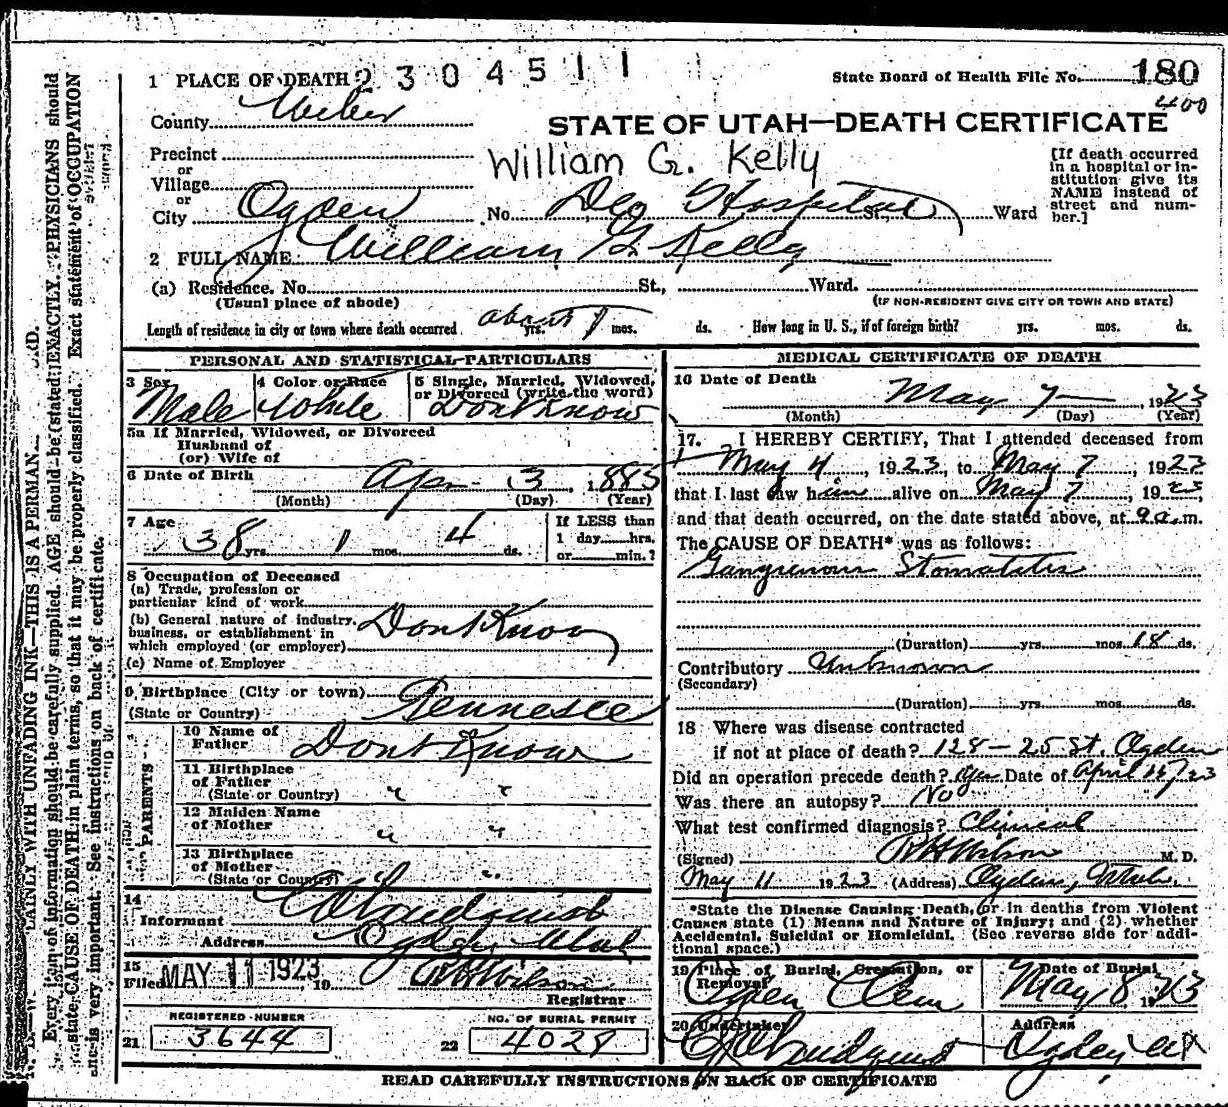 1 PLACE OF DEATH 2304511
State Board of Health File No. 180
400
County Weber
STATE OF UTAH—DEATH CERTIFICATE
Precinct
or
Village
or
City Ogden
William G. Kelly
No. Dee Hospital St., Ward
[If death occurred
in a hospital or in-
stitution give its
NAME instead of
street and num-
ber.]
2 FULL NAME William G Kelly
(a) Residence. No. St., Ward.
(Usual place of abode)
(IF NON-RESIDENT GIVE CITY OR TOWN AND STATE)
Length of residence in city or town where death occurred about 1 yrs. mos. ds. How long in U. S., if of foreign birth? yrs. mos. ds.
PERSONAL AND STATISTICAL PARTICULARS
3 Sex Male
4 Color or Race White
5 Single, Married, Widowed,
or Divorced (write the word)
Dont Know
5a If Married, Widowed, or Divorced
Husband of
(or) Wife of
6 Date of Birth Apr 3, 1885
(Month) (Day) (Year)
7 Age 38 yrs. 1 mos. 4 ds.
If LESS than
1 day hrs.
or min.?
8 Occupation of Deceased
(a) Trade, profession or
particular kind of work
(b) General nature of industry,
business, or establishment in
which employed (or employer)
Dont Know
(c) Name of Employer
9 Birthplace (City or town)
(State or Country)
Tennesee
PARENTS
10 Name of
Father Dont Know
11 Birthplace
of Father
(State or Country) " "
12 Maiden Name
of Mother " "
13 Birthplace
of Mother
(State or Country) " "
14
Informant
Address Ogden Utah
15
Filed MAY 11 1923, 19 R H Wilson
Registrar
REGISTERED NUMBER
21 3644
NO. OF BURIAL PERMIT
22 4028
MEDICAL CERTIFICATE OF DEATH
16 Date of Death
May 7, 1923
(Month) (Day) (Year)
17. I HEREBY CERTIFY, That I attended deceased from
May 4, 1923, to May 7, 1923
that I last saw him alive on May 7, 1923
and that death occurred, on the date stated above, at 9 a.m.
The CAUSE OF DEATH* was as follows:
Gangrenous Stomatitis
(Duration) yrs. mos. 18 ds.
Contributory Unknown
(Secondary)
(Duration) yrs. mos. ds.
18 Where was disease contracted
if not at place of death? 128 – 25 St. Ogden
Did an operation precede death? Yes Date of April /23
Was there an autopsy? No
What test confirmed diagnosis? Clinical
(Signed) R H Wilson M. D.
May 11 1923 (Address) Ogden, Utah.
*State the Disease Causing Death, or in deaths from Violent
Causes state (1) Means and Nature of Injury; and (2) whether
Accidental, Suicidal or Homicidal. (See reverse side for addi-
tional space.)
19 Place of Burial, Cremation, or
Removal
Ogden Cem
Date of Burial
May 8 1923
20 Undertaker
Address
Ogden Ut
READ CAREFULLY INSTRUCTIONS ON BACK OF CERTIFICATE
LAINLY WITH UNFADING INK—THIS IS A PERMAN
Every item of information should be carefully supplied. AGE should be stated EXACTLY. PHYSICIANS should
state CAUSE OF DEATH in plain terms, so that it may be properly classified. Exact statement of OCCUPATION
is very important. See instructions on back of certificate.